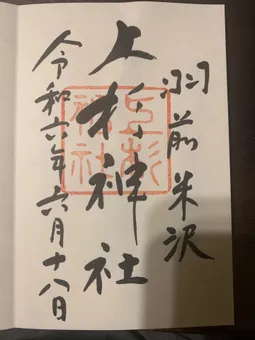 羽前米沢
上杉神社
令和六年六月十八日
上杉神社